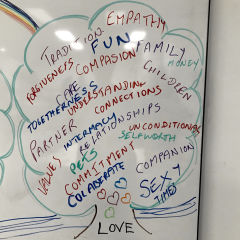 TRADITION
EMPATHY
FUN
FAMILY
MONEY
FORGIVENESS
COMPASION
CHILDREN
CARE
TOGETHERNESS
UNDERSTANDING
CONNECTIONS
PARTNER
INTERMACY
RELATIONSHIPS
UNCONDITIONAL
SELFWORTH
PETS
VALUES
COMMITMENT
COMPANION
COLABERATE
SEXY
TIMES
LOVE